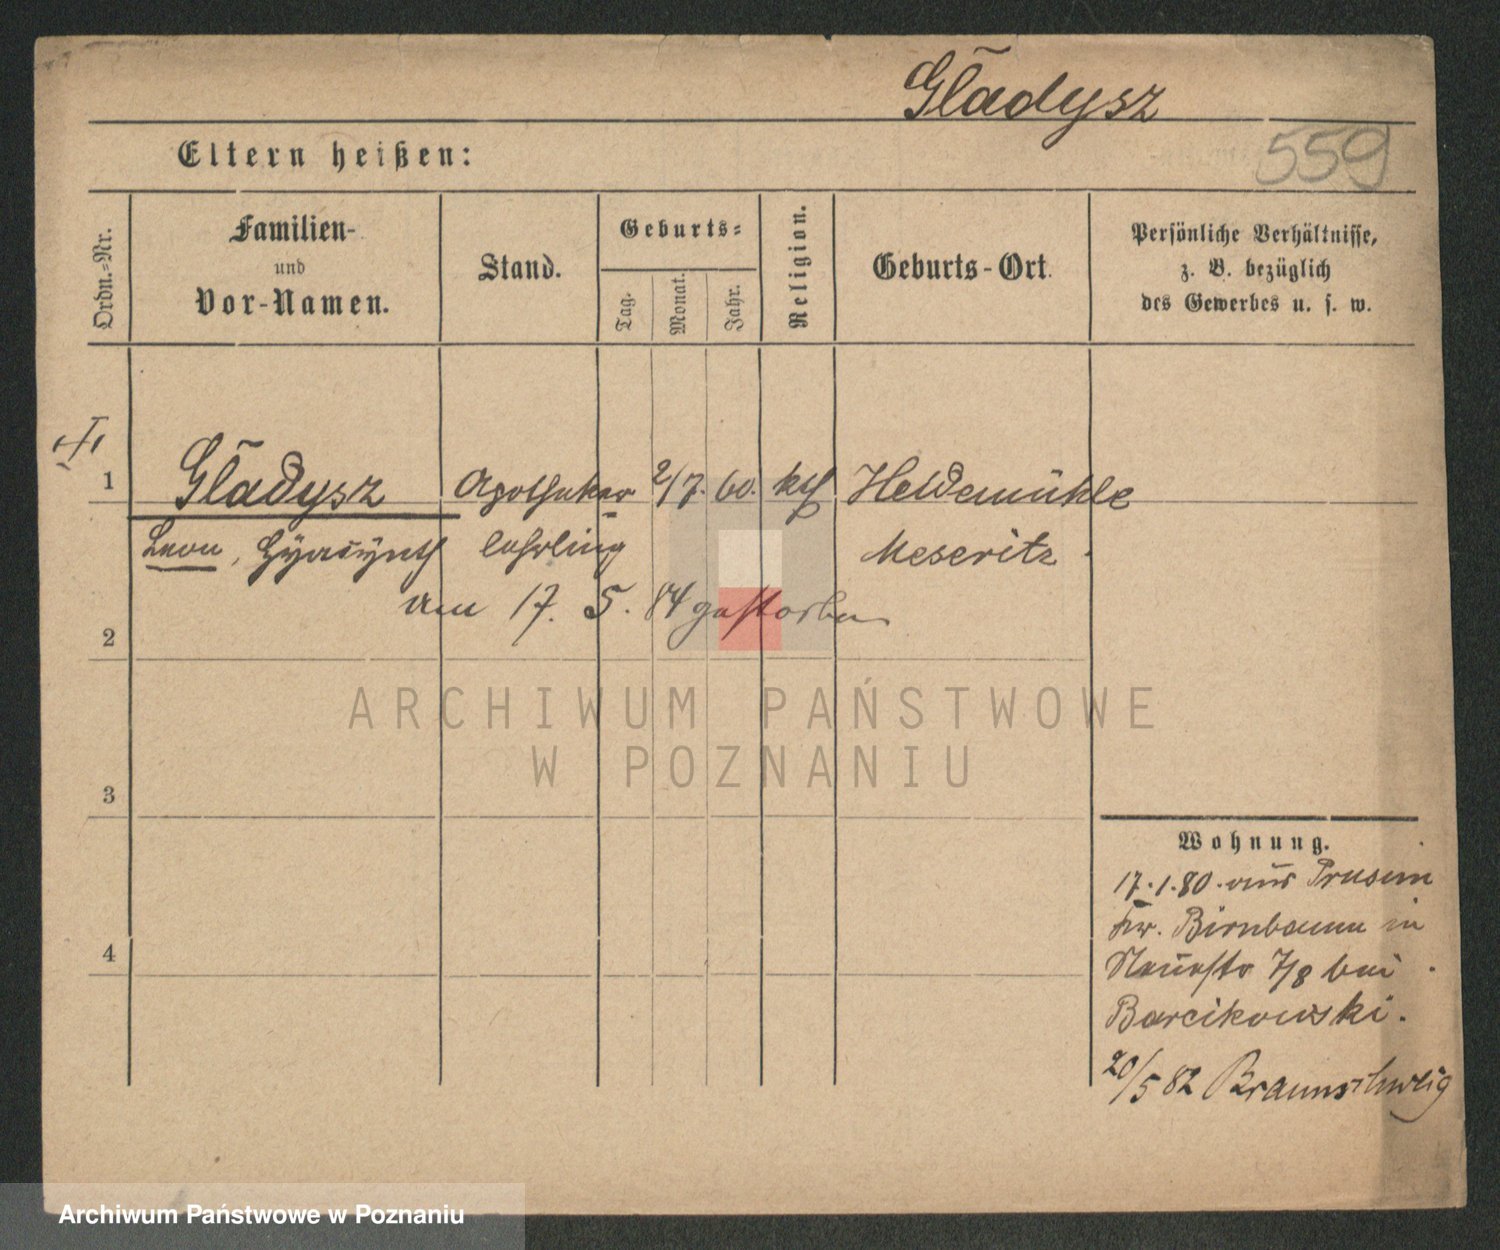 Gladysz
559
Eltern heißen:
Ordn.=Nr.
Familien-
und
Vor-Namen.
Stand.
Geburts=
Tag.
Monat.
Jahr.
Religion.
Geburts-Ort.
Persönliche Verhältnisse,
z. B. bezüglich
des Gewerbes u. s. w.
1 Gladysz Apotheker 2/7. 60. kth Heidemühle
Leon, Hyacinth lehrling Meseritz
am 17. 5. 84 gestorben
2
ARCHIWUM PAŃSTWOWE
W POZNANIU
3
4
Wohnung.
17.1.80. aus Prusim
Kr. Birnbaum in
Neuestr 7/8 bei
Barcikowski.
20/5 82 Braunschweig
Archiwum Państwowe w Poznaniu